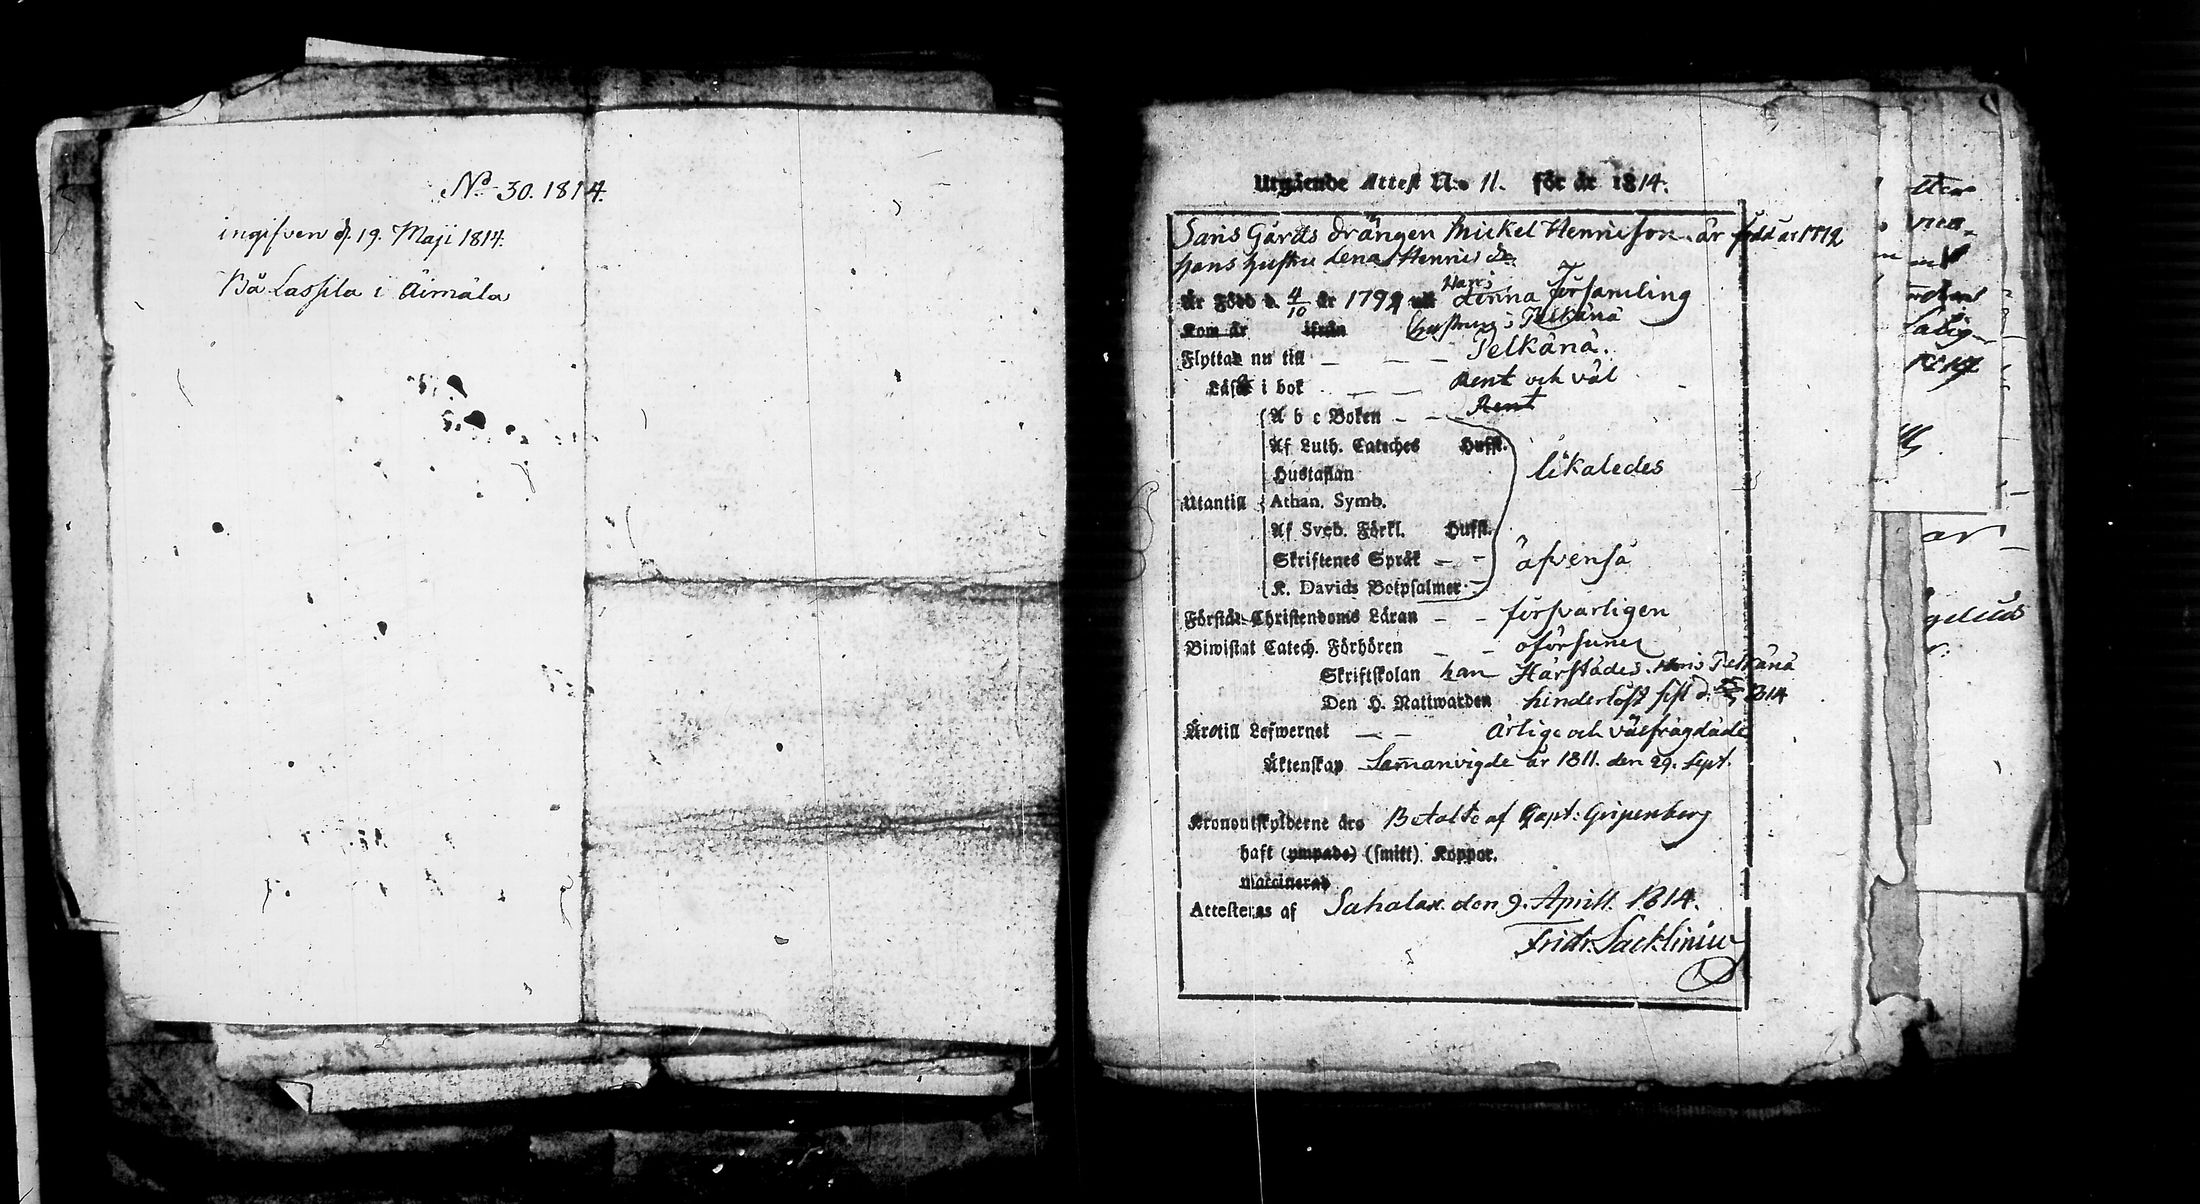 No 30. 1814.
ingifven d. 19. Maji 1814.
På Lassila i Äimälä
Utgående Attest N:o 11. för år 1814.
Saris Gårds drängen Mickel Hennison är född år 1792
hans hustru Lena Hennis dr.
Är Född d. 4/10 år 1792 uti denna församling
Kom år ifrån hustrun i Pelkänä
Flyttar nu till — — — Pelkänä.
Läser i bok — — Rent och väl
A b c Boken — — Rent
Af Luth. Cateches Huffst.
Hustaflan likaledes
Utantill Athan. Symb.
Af Sveb. Förkl. Huffst.
Skriftenes Språk — — äfvenså
K. Davids Botpsalmer —
Förstår Christendoms Läran — — försvarligen
Biwistat Catech. Förhören — — oförsumel
Skriftskolan han Härstädes. Hon i Pelkänä
Den H. Nattwarden hinderlöst sist d. 1814
Äro till Lefwernet — — Ärlige och välfrägdade
Äktenskap Sammanvigde år 1811. den 29. Sept.
Kronoutskylderne äro Betalte af Capt: Gripenberg
haft (ympade) (smitt) Koppor.
vaccinerad
Attesteras af Sahalax den 9. Aprill. 1814.
Fridr. Sacklinius